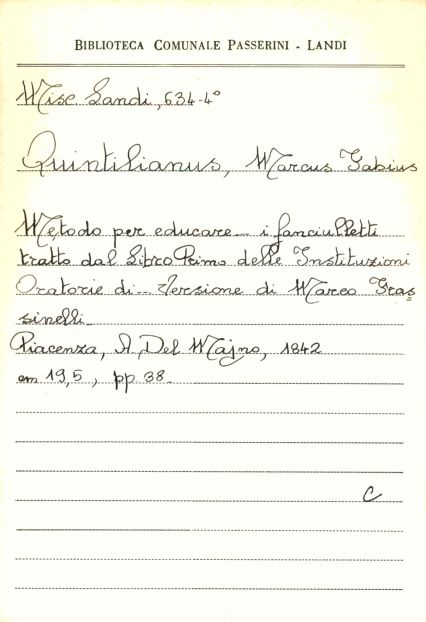 BIBLIOTECA COMUNALE PASSERINI - LANDI
Misc Landi, 634-4°
Quintilianus, Marcus Fabius
Metodo per educare... i fanciulletti
tratto dal Libro Primo delle Instituzioni
Oratorie di... Versione di Marco Fras=
sinelli.
Piacenza, A. Del Majno, 1842
cm 19,5, pp 38.
C